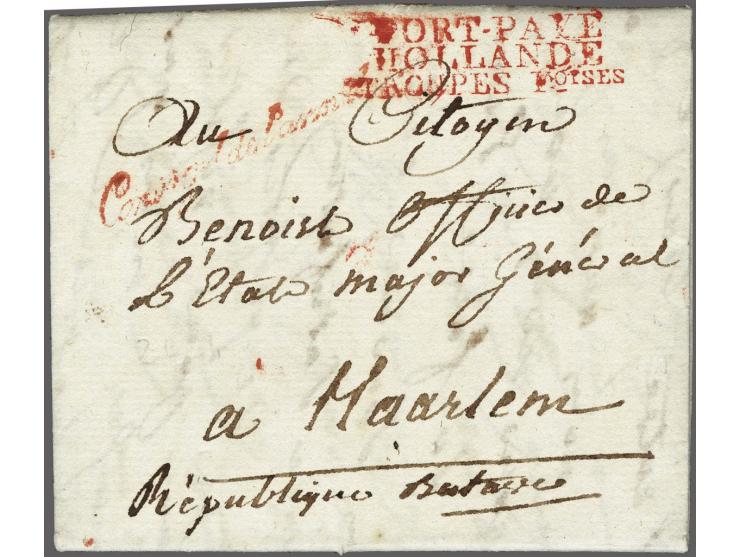 PORT-PAYÉ
HOLLANDE
TROUPES F.OISES
Au Citoyen
Benoist Officier de
L'État major Général
a Haarlem
République Batave